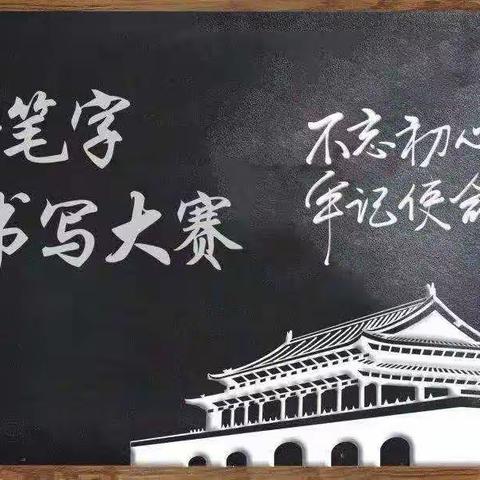 笔字
书写大赛
不忘初心
牢记使命